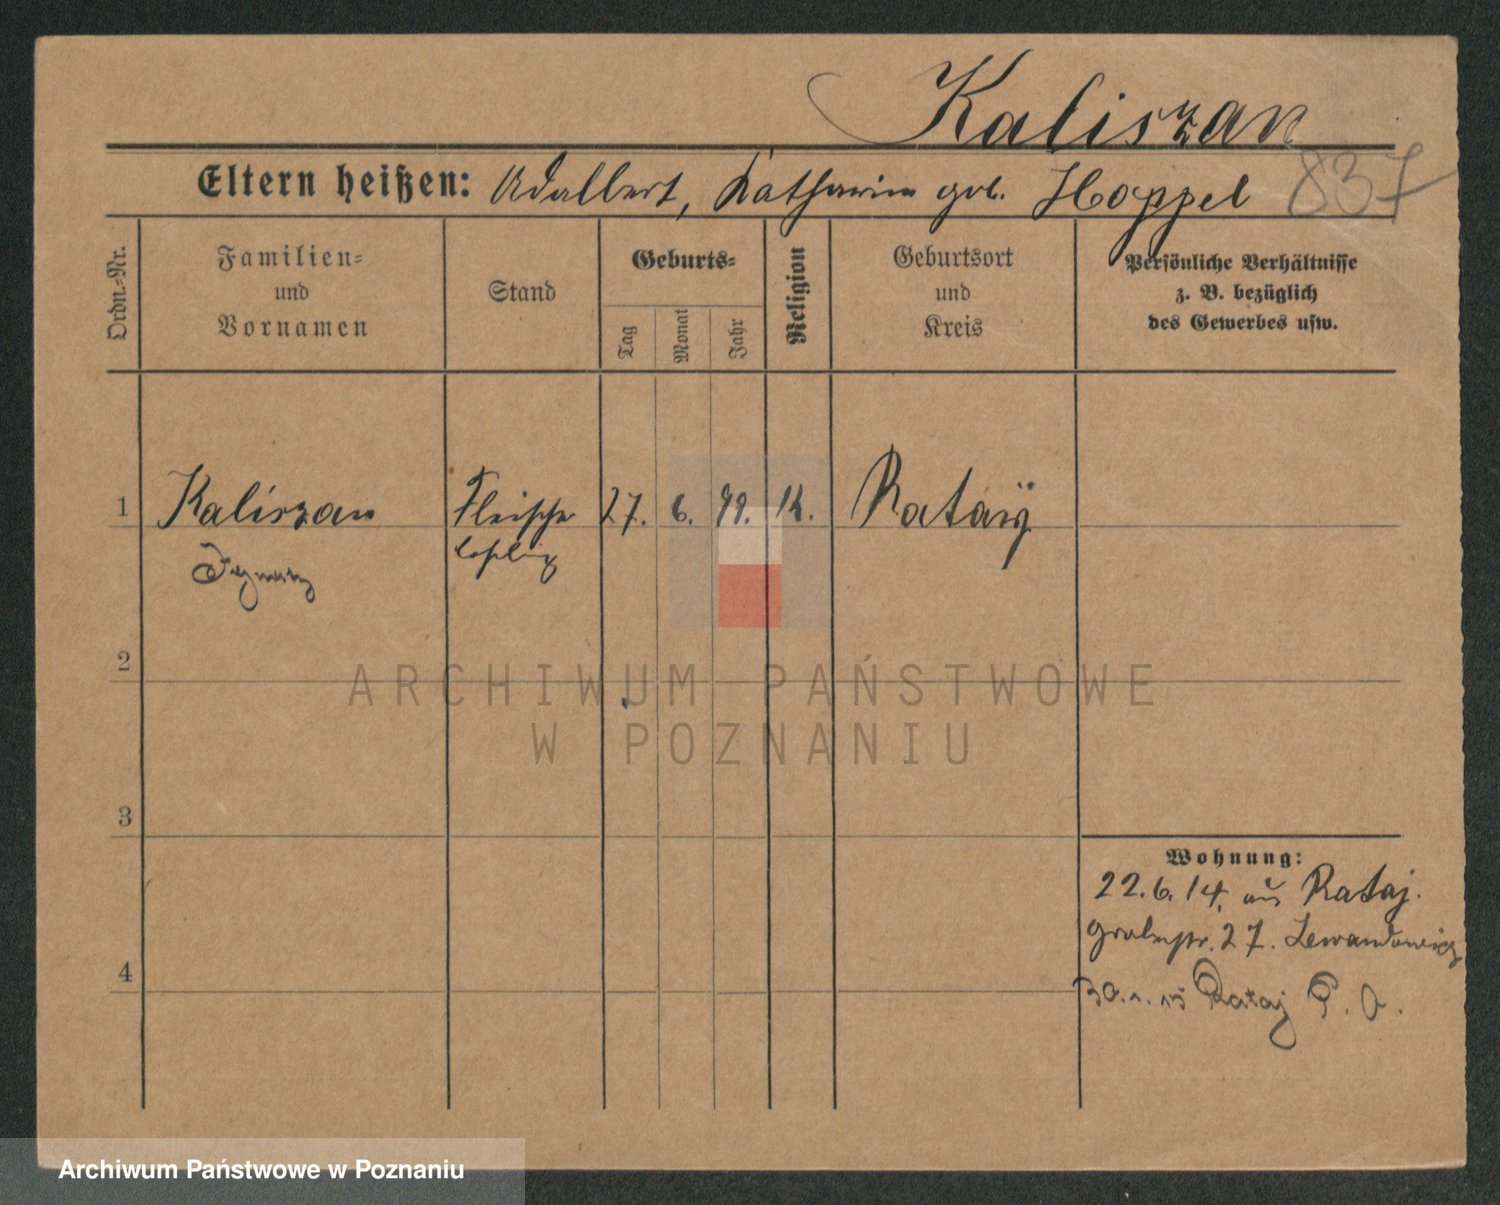 Kaliszan
837
Eltern heißen: Adalbert, Katharina geb. Hoppel
Ordn.-Nr.
Familien-
und
Vornamen
Stand
Geburts-
Tag
Monat
Jahr
Religion
Geburtsort
und
Kreis
Persönliche Verhältnisse
z. B. bezüglich
des Gewerbes usw.
1 Kaliszan Fleischer 27. 6. 99. K. Rataÿ
2
ARCHIWUM PAŃSTWOWE
W POZNANIU
3
Wohnung:
22.6.14. aus Rataj.
Grabenstr. 27. Lewandowicz
4
Rataj
Archiwum Państwowe w Poznaniu